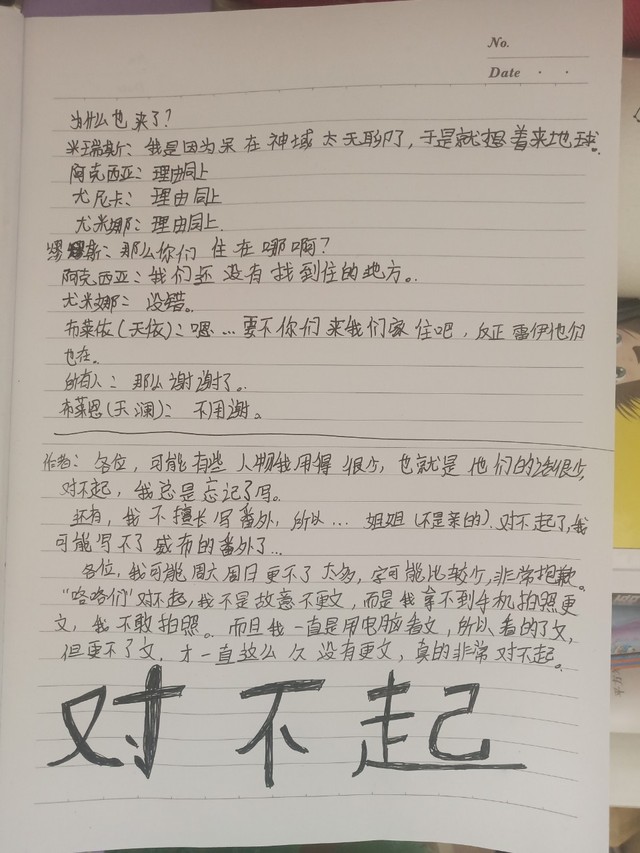 No.
Date · ·
为什么也来了？
米瑞斯：我是因为呆在神域太无聊了，于是就想着来地球。
阿克西亚：理由同上
尤尼卡：理由同上
尤米娜：理由同上.
缪斯：那么你们住在哪啊？
阿克西亚：我们还没有找到住的地方。
尤米娜：没错。
布莱依(天依)：嗯…要不你们来我们家住吧，反正雷伊他们
也在。
所有人：那么谢谢了。
布莱恩(天澜)：不用谢。
作者：各位，可能有些人物我用得很少，也就是他们的话很少,
对不起，我总是忘记了写。
还有，我不擅长写番外，所以…姐姐(不是亲的).对不起了,我
可能写不了盛布的番外了…
各位,我可能周六周日更不了太多，字可能比较少,非常抱歉。
"咯咯们"对不起,我不是故意不更文，而是我拿不到手机拍照更
文，我不敢拍照。而且我一直是用电脑看文，所以看的了文，
但更不了文，才一直这么久没有更文，真的非常对不起。
对不起